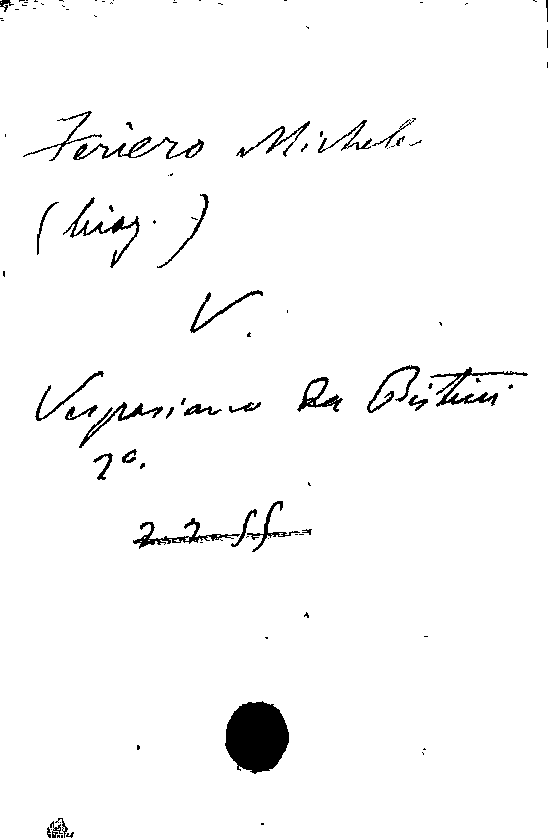 Feriero Michele
(biog.)
V.
Vespasiano Da Bisticci
2º.